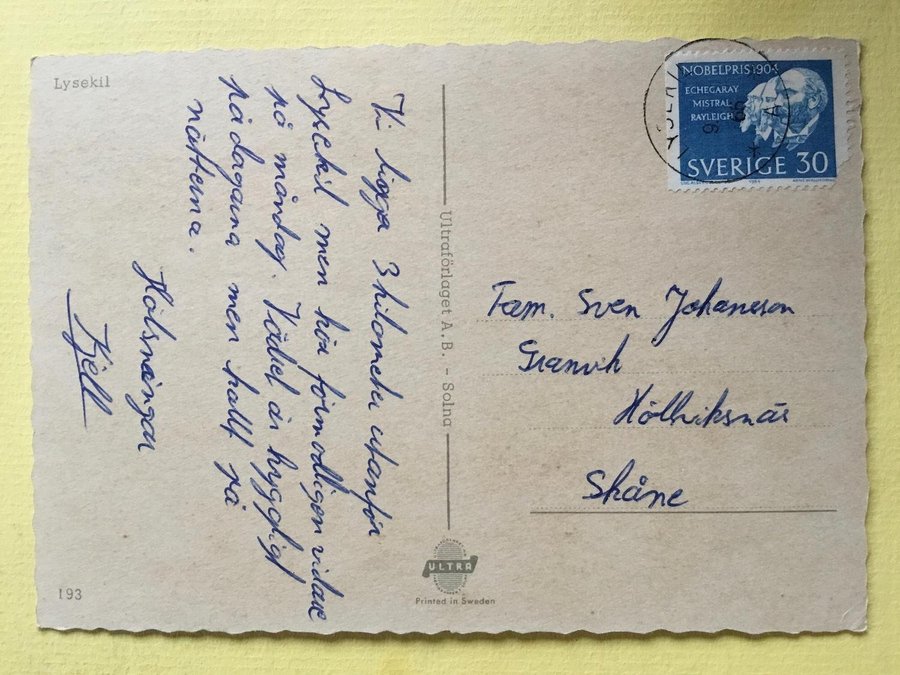 Lysekil
Vi ligga 3 kilometer utanför
Lysekil men kör förmodligen vidare
på måndag. Vädret är hyggligt
på dagarna men kallt på
nätterna.
Hälsningar
Kjell
193
Ultraförlaget A.B. - Solna
ULTRA
Printed in Sweden
NOBELPRIS 1904
ECHEGARAY
MISTRAL
RAYLEIGH
SVERIGE 30
Fam. Sven Johansson
Granvik
Höllviksnäs
Skåne